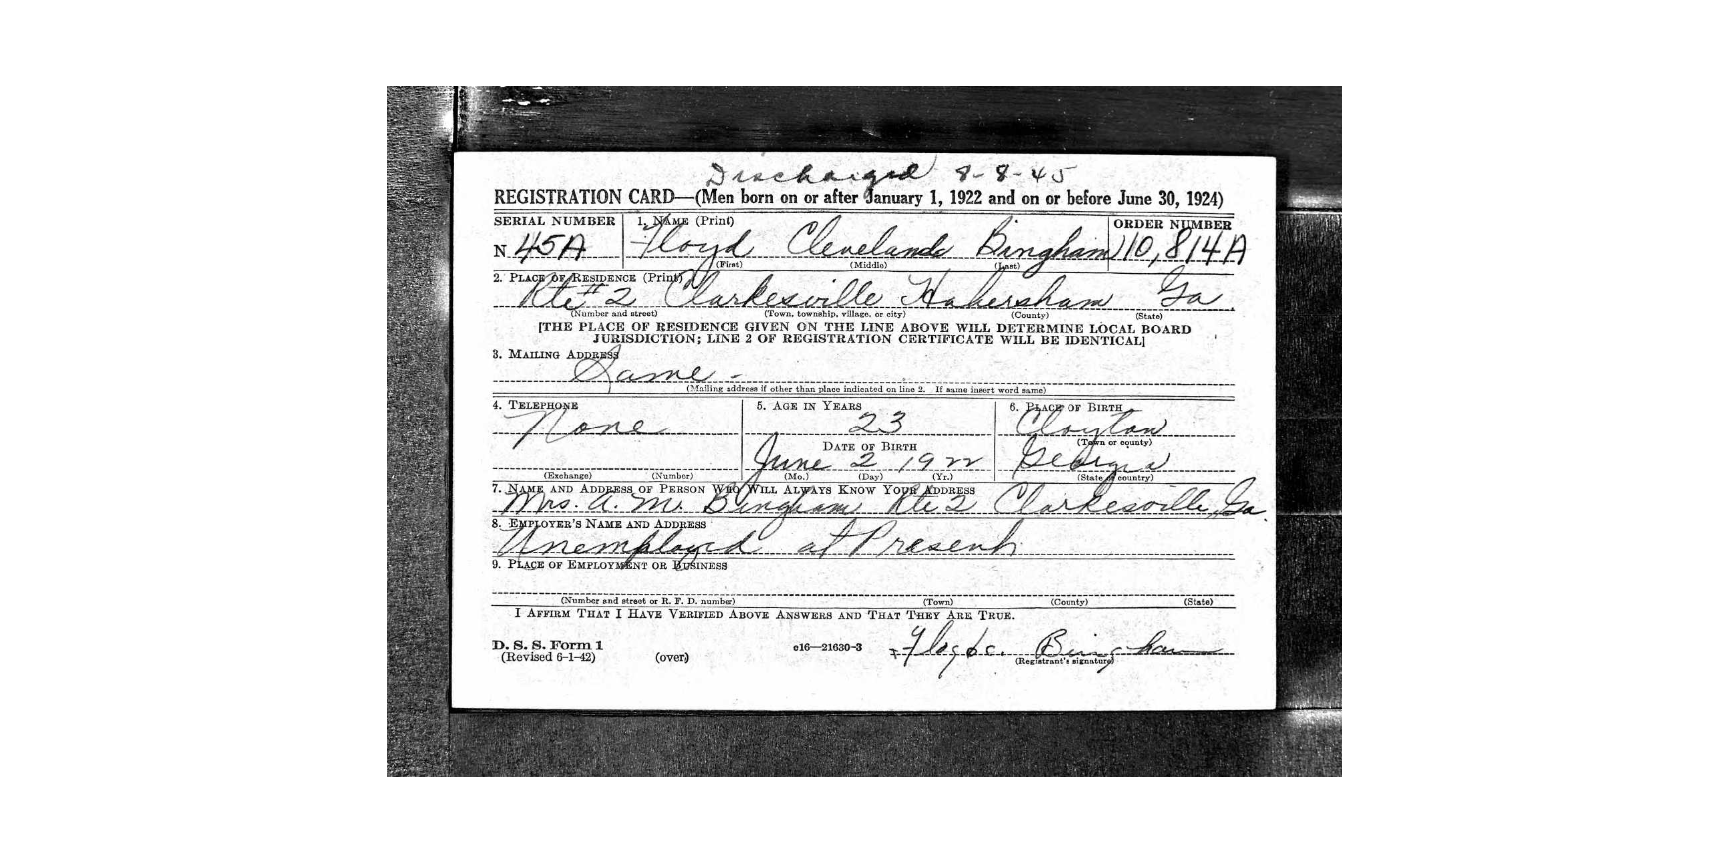 Discharged 8-8-45
REGISTRATION CARD—(Men born on or after January 1, 1922 and on or before June 30, 1924)
SERIAL NUMBER 1. NAME (Print) ORDER NUMBER
N 45A Floyd Cleveland Bingham 10,814A
(First) (Middle) (Last)
2. PLACE OF RESIDENCE (Print)
Rte #2 Clarkesville Habersham Ga
(Number and street) (Town, township, village, or city) (County) (State)
[THE PLACE OF RESIDENCE GIVEN ON THE LINE ABOVE WILL DETERMINE LOCAL BOARD
JURISDICTION; LINE 2 OF REGISTRATION CERTIFICATE WILL BE IDENTICAL]
3. MAILING ADDRESS
Same -
(Mailing address if other than place indicated on line 2. If same insert word same)
4. TELEPHONE 5. AGE IN YEARS 6. PLACE OF BIRTH
None 23 Clayton
DATE OF BIRTH (Town or county)
June 2 1922 Georgia
(Exchange) (Number) (Mo.) (Day) (Yr.) (State or country)
7. NAME AND ADDRESS OF PERSON WHO WILL ALWAYS KNOW YOUR ADDRESS
Mrs. A. M. Bingham Rte 2 Clarkesville, Ga.
8. EMPLOYER'S NAME AND ADDRESS
Unemployed at Present
9. PLACE OF EMPLOYMENT OR BUSINESS
(Number and street or R. F. D. number) (Town) (County) (State)
I AFFIRM THAT I HAVE VERIFIED ABOVE ANSWERS AND THAT THEY ARE TRUE.
D. S. S. Form 1
(Revised 6-1-42) (over) c16—21630-3 Floyd C. Bingham
(Registrant's signature)